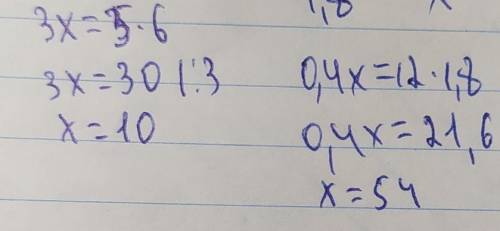 1,8 x
3x=5·6
3x=30 |:3
x=10
0,4x=12·1,8
0,4x=21,6
x=54